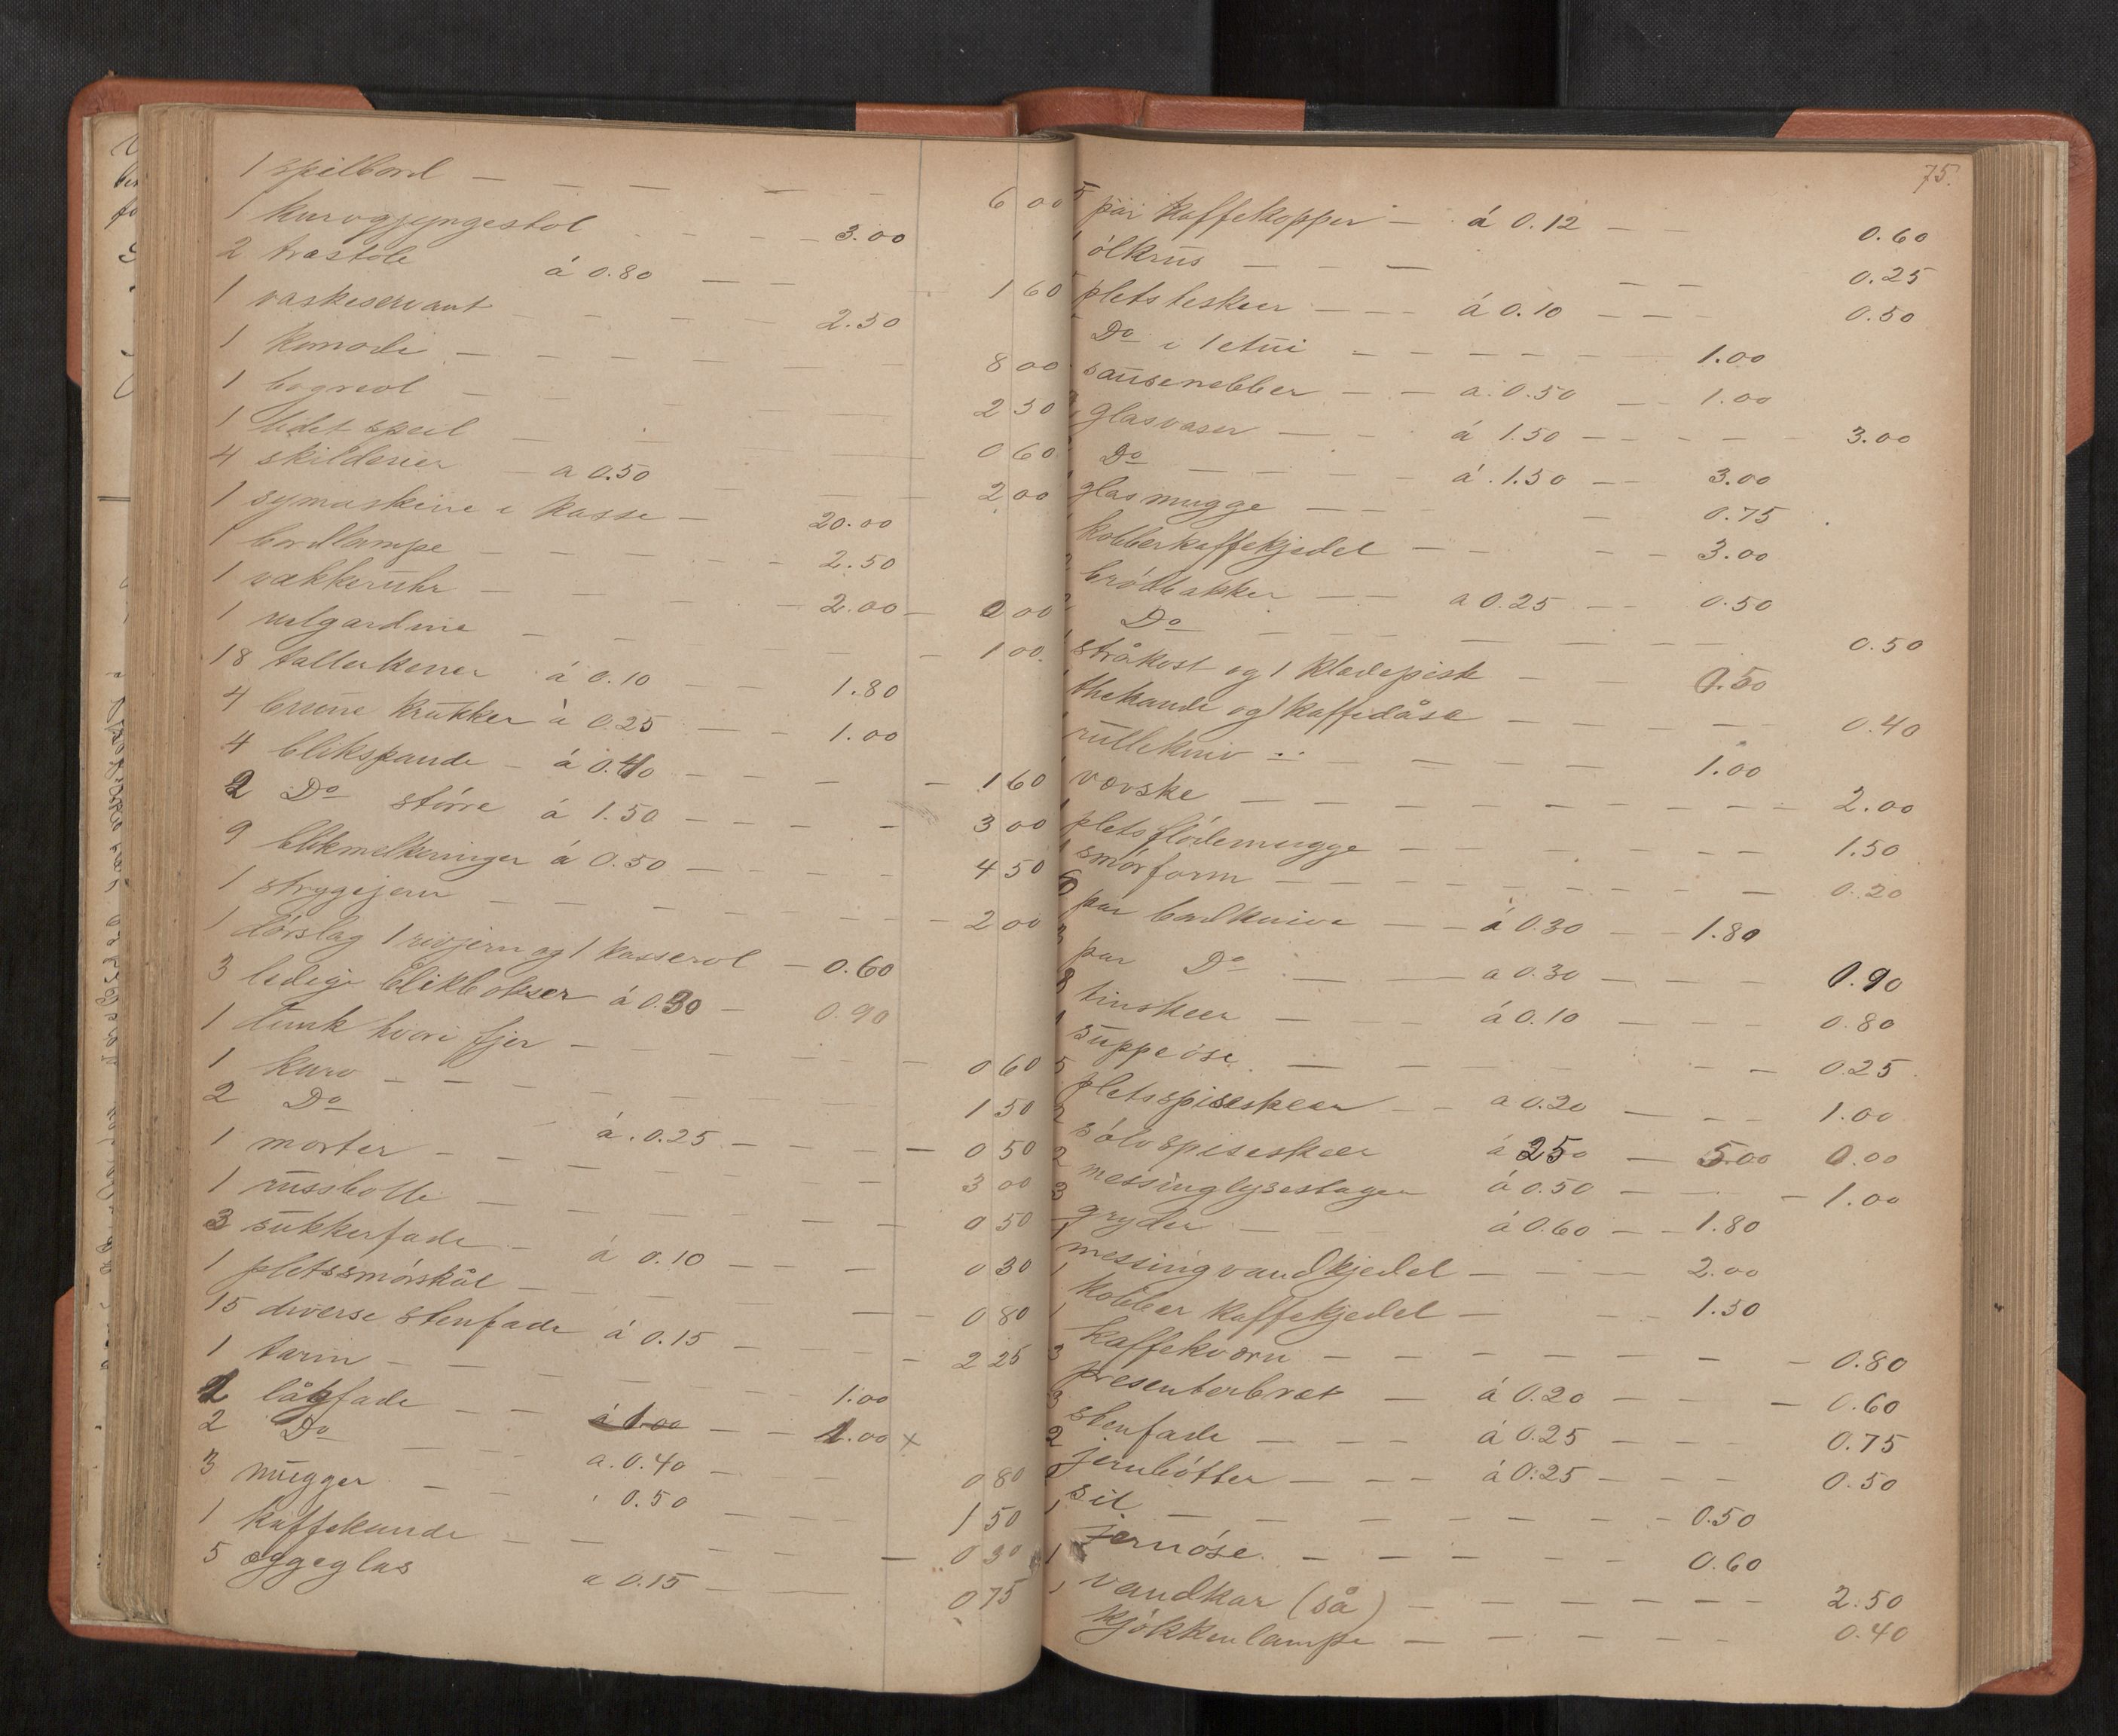 1 spilbord — — — — — 6 00
1 kurvgyngestol — — — 3.00
2 træstole á 0.80 — — 1 60
1 vaskeservant — — — — 2.50
1 komode — — — — 8 00
1 bogreol — — — 2 50
1 lidet speil — — — 0 60
4 skilderier — a 0.50 — 2 00
1 symaskine i kasse — 20.00
1 bordlampe — — — — 2.50
1 vækkeruhr — — — — 2.00 — 0 00
1 rulgardine — — — — 1 00
18 tallerkener á 0.10 — — 1.80
4 brune krukker à 0.25 — — 1.00
4 blikspande — á 0.40 — — — — 1 60
2 Do större á 1.50 — — — — 3 00
9 blikmelkeringer á 0.50 — — — — 4 50
1 strygejern — — — — — 2 00
1 dörslag 1 rivjern og 1 kasserol — 0.60
3 ledige blikbokser á 0.30 — 0.90
1 dunk hvori fjer — — — — 0 60
1 kurv — — — — 1 50
2 Do á. 0.25 — — — 0 50
1 morter — — — — 3 00
1 — — — — 0 50
3 sukkerfade — á 0.10 — — — 0 30
1 pletssmörskål — — — — 0 80
15 diverse stenfade á 0.15 — — — 2 25
1 tarin — — — — 1.00
1 lågfade — — á 1.00 — — 1.00 x
2 Do — — a. 0.40 — — 0 80
3 mugger — — 0.50 — — — 1 50
1 kaffekande — — — — 0 30
5 eggeglas a 0.15 — — 0 75
75.
5 par kaffekopper — á 0.12 — — 0.60
1 ölkrus — — — — — 0.25
pletsteskeer — — — á 0.10 — — — 0.50
Do i 1 etui — — — — — — 1.00
sausenebber — — a. 0.50 — 1.00
glasvaser — — á 1.50 — — — — — 3.00
Do — — — á. 1.50 — — 3.00
glasmugge — — — 0.75
kobberkaffekjedel — — — — 3.00
brödbakker — — a 0.25 — — 0.50
Do — — — — — — 0.50
stråkost og 1 klædepisk — — 0.50
thekande og 1 kaffedåse — — — — 0.40
rullekniv — — — — — 1.00
vævske — — — — — — — — 2.00
plets flödemugge — — — — — — 1.50
smörform — — — — — — — 0.20
6 par bordknive — — á 0.30 — — 1.80
3 par Do — — a 0.30 — — — 0.90
8 tinskeer — — — á 0.10 — — — 0.80
1 suppeöse — — — — — — 0.25
5 pletsspiseskeer — — a 0.20 — — — 1.00
2 sölvspiseskeer á 250 — 5.00 0.00
2 messinglysestager á 0.50 — — — 1.00
3 gryder — — á 0.60 — — 1.80
1 messingvandkjedel — — — — 2.00
1 kobber kaffekjedel — — — 1.50
1 kaffekværn — — — — — — — 0.80
3 presenterbræt — á 0.20 — — — 0.60
3 stenfade — — — á 0.25 — — — 0.75
2 jernbötter — — — á 0.25 — — — 0.50
1 sil — — — — — — — 0.50
jernöse — — — — — — 0.60
1 vandkar (så) — — — — — — 2.50
1 kjökkenlampe — — — — — 0.40